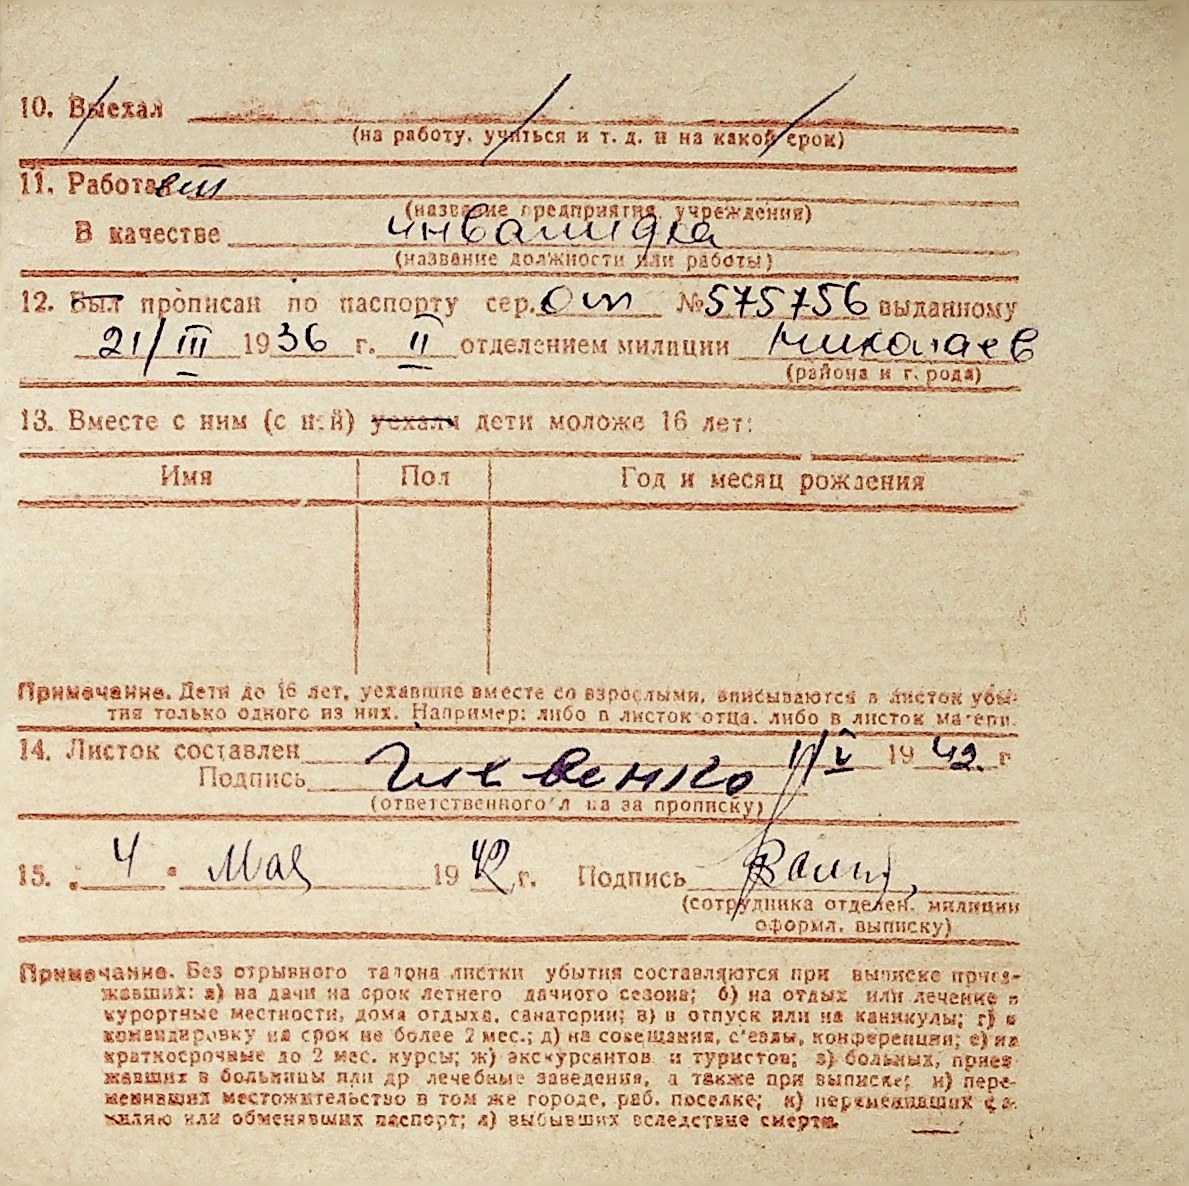 10. Выехал
(на работу, учиться и т. д. и на какой срок)
11. Работает
(название предприятия, учреждения)
В качестве инвалидка
(название должности или работы)
12. Был прописан по паспорту сер. №575756 выданному
21/III 1936 г. II отделением милиции Николаев
(района и города)
13. Вместе с ним (с ней) уехали дети моложе 16 лет:
Имя Пол Год и месяц рождения
Примечание. Дети до 16 лет, уехавшие вместе со взрослыми, вписываются в листок убы-
тия только одного из них. Например: либо в листок отца, либо в листок матери.
14. Листок составлен 1/V 1942 г
Подпись
(ответственного лица за прописку)
15. „4“ Мая 1942 г. Подпись
(сотрудника отделен. милиции
оформл. выписку)
Примечание. Без отрывного талона листки убытия составляются при выписке приез-
жавших: а) на дачи на срок летнего дачного сезона; б) на отдых или лечение в
курортные местности, дома отдыха, санатории; в) в отпуск или на каникулы; г) в
командировку на срок не более 2 мес.; д) на совещания, с'езды, конференции; е) на
краткосрочные до 2 мес. курсы; ж) экскурсантов и туристов; з) больных, приез-
жавших в больницы или др лечебные заведения, а также при выписке; и) пере-
менивших местожительство в том же городе, раб. поселке; к) переменивших фа-
милию или обменявших паспорт; л) выбывших вследствие смерти.